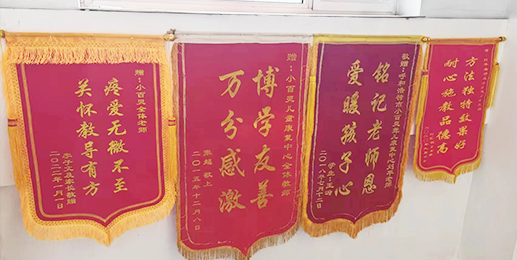 赠：小百灵全体老师
疼爱无微不至
关怀教导有方
李子文及家长敬赠
二〇二二年一月一日
赠：小百灵儿童康复中心全体教师
博学友善
万分感激
张超 敬上
二〇一五年十二月八日
敬赠：呼和浩特市小百灵儿童康复中心
铭记老师恩
爱暖孩子心
二〇一八年七月十二日
方法独特效果好
耐心施教品德高